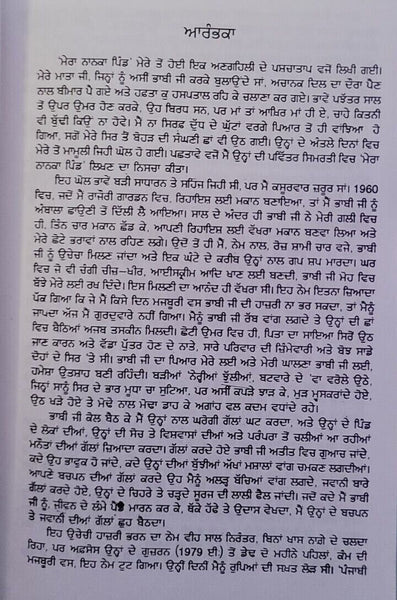 ਆਰੰਭਕਾ
'ਮੇਰਾ ਨਾਨਕਾ ਪਿੰਡ' ਮੇਰੇ ਤੋਂ ਹੋਈ ਇਕ ਅਣਗਹਿਲੀ ਦੇ ਪਸ਼ਚਾਤਾਪ ਵਜੋਂ ਲਿਖੀ ਗਈ।
ਮੇਰੇ ਮਾਤਾ ਜੀ, ਜਿਨ੍ਹਾਂ ਨੂੰ ਅਸੀਂ ਭਾਬੀ ਜੀ ਕਰਕੇ ਬੁਲਾਉਂਦੇ ਸਾਂ, ਅਚਾਨਕ ਦਿਲ ਦਾ ਦੌਰਾ ਪੈਣ
ਨਾਲ ਬੀਮਾਰ ਪੈ ਗਏ ਅਤੇ ਹਫਤਾ ਕੁ ਹਸਪਤਾਲ ਰਹਿ ਕੇ ਚਲਾਣਾ ਕਰ ਗਏ। ਭਾਵੇਂ ਪਝੰਤਰ ਸਾਲ
ਤੋਂ ਉਪਰ ਉਮਰ ਹੋਣ ਕਰਕੇ, ਉਹ ਬਿਰਧ ਸਨ, ਪਰ ਮਾਂ ਤਾਂ ਆਖ਼ਿਰ ਮਾਂ ਹੀ ਏ, ਚਾਹੇ ਕਿਤਨੀ
ਵੀ ਬੁੱਢੀ ਕਿਉਂ ਨਾ ਹੋਵੇ। ਮੈਂ ਨਾ ਸਿਰਫ ਦੁੱਧ ਦੇ ਘੁੱਟਾਂ ਵਰਗੇ ਪਿਆਰ ਤੋਂ ਹੀ ਵਾਂਝਿਆ ਹੋ
ਗਿਆ, ਸਗੋਂ ਮੇਰੇ ਸਿਰ ਤੋਂ ਬੋਹੜ ਦੀ ਸੰਘਣੀ ਛਾਂ ਵੀ ਉਠ ਗਈ। ਉਨ੍ਹਾਂ ਦੇ ਅੰਤਲੇ ਦਿਨਾਂ ਵਿਚ
ਮੇਰੇ ਤੋਂ ਮਾਮੂਲੀ ਜਿਹੀ ਘੇਲ ਹੋ ਗਈ। ਪਛਤਾਵੇ ਵਜੋਂ ਮੈਂ ਉਨ੍ਹਾਂ ਦੀ ਪਵਿੱਤਰ ਸਿਮਰਤੀ ਵਿਚ 'ਮੇਰਾ
ਨਾਨਕਾ ਪਿੰਡ' ਲਿਖਣ ਦਾ ਨਿਸਚਾ ਕੀਤਾ।
ਇਹ ਘੇਲ ਭਾਵੇਂ ਬੜੀ ਸਾਧਰਨ ਤੇ ਸਹਿਜ ਜਿਹੀ ਸੀ, ਪਰ ਮੈਂ ਕਸੂਰਵਾਰ ਜ਼ਰੂਰ ਸਾਂ। 1960
ਵਿਚ, ਜਦੋਂ ਮੈਂ ਰਾਜੌਰੀ ਗਾਰਡਨ ਵਿਚ, ਰਿਹਾਇਸ਼ ਲਈ ਮਕਾਨ ਬਣਾਇਆ, ਤਾਂ ਮੈਂ ਭਾਬੀ ਜੀ ਨੂੰ
ਅੰਬਾਲਾ ਛਾਉਣੀ ਤੋਂ ਦਿੱਲੀ ਲੈ ਆਇਆ। ਸਾਲ ਦੇ ਅੰਦਰ ਹੀ ਭਾਬੀ ਜੀ ਨੇ ਮੇਰੀ ਗਲੀ ਵਿਚ
ਹੀ, ਤਿੰਨ ਚਾਰ ਮਕਾਨ ਛੱਡ ਕੇ, ਆਪਣੀ ਰਿਹਾਇਸ਼ ਲਈ ਵੱਖਰਾ ਮਕਾਨ ਬਣਵਾ ਲਿਆ ਅਤੇ
ਮੇਰੇ ਛੋਟੇ ਭਰਾਵਾਂ ਨਾਲ ਰਹਿਣ ਲਗੇ। ਉਦੋਂ ਤੋਂ ਹੀ ਮੈਂ, ਨੇਮ ਨਾਲ, ਰੋਜ਼ ਸ਼ਾਮੀ ਚਾਰ ਵਜੇ, ਭਾਬੀ
ਜੀ ਨੂੰ ਉਚੇਚਾ ਮਿਲਣ ਜਾਂਦਾ ਅਤੇ ਇਕ ਘੰਟੇ ਦੇ ਕਰੀਬ ਉਨ੍ਹਾਂ ਨਾਲ ਗਪ ਸ਼ਪ ਮਾਰਦਾ। ਘਰ
ਵਿਚ ਜੋ ਵੀ ਚੰਗੀ ਚੀਜ਼—ਖੀਰ, ਆਈਸਕ੍ਰੀਮ ਆਦਿ ਖਾਣ ਲਈ ਬਣਦੀ, ਭਾਬੀ ਜੀ ਮੋਹ ਵਿਚ
ਬੱਝੇ ਮੇਰੇ ਲਈ ਰਖ ਦਿੰਦੇ। ਇਸ ਮਿਲਣੀ ਦਾ ਆਨੰਦ ਹੀ ਵੱਖਰਾ ਸੀ। ਇਹ ਨੇਮ ਇਤਨਾ ਜ਼ਿਆਦਾ
ਪੱਕ ਗਿਆ ਕਿ ਜੇ ਮੈਂ ਕਿਸੇ ਦਿਨ ਮਜਬੂਰੀ ਵਸ ਭਾਬੀ ਜੀ ਦੀ ਹਾਜ਼ਰੀ ਨਾ ਭਰ ਸਕਦਾ, ਤਾਂ ਮੈਨੂੰ
ਜਾਪਦਾ ਅੱਜ ਮੈਂ ਗੁਰਦਵਾਰੇ ਨਹੀਂ ਗਿਆ। ਮੈਨੂੰ ਭਾਬੀ ਜੀ ਰੱਬ ਵਾਂਗ ਲਗਦੇ ਤੇ ਉਨ੍ਹਾਂ ਦੀ ਛਾਂ
ਵਿਚ ਬੈਠਿਆਂ ਅਜਬ ਤਸਕੀਨ ਮਿਲਦੀ। ਛੋਟੀ ਉਮਰ ਵਿਚ ਹੀ, ਪਿਤਾ ਦਾ ਸਾਇਆ ਸਿਰੋਂ ਉਠ
ਜਾਣ ਕਾਰਨ ਅਤੇ ਵੱਡਾ ਪੁੱਤਰ ਹੋਣ ਦੇ ਨਾਤੇ, ਸਾਰੇ ਪਰਿਵਾਰ ਦੀ ਜ਼ਿੰਮੇਵਾਰੀ ਅਤੇ ਬੋਝ ਸਾਡੇ
ਦੋਹਾਂ ਦੇ ਸਿਰ 'ਤੇ ਸੀ। ਭਾਬੀ ਜੀ ਦਾ ਪਿਆਰ ਮੇਰੇ ਲਈ ਅਤੇ ਮੇਰੀ ਘਾਲਣਾ ਭਾਬੀ ਜੀ ਲਈ,
ਹਮੇਸ਼ਾ ਉਤਸ਼ਾਹ ਬਣੀ ਰਹਿੰਦੀ। ਬੜੀਆਂ 'ਨੇਰ੍ਹੀਆਂ ਝੁੱਲੀਆਂ, ਬਟਵਾਰੇ ਦੇ 'ਵਾ ਵਰੋਲੇ ਉਠੇ,
ਜਿਨ੍ਹਾਂ ਸਾਨੂੰ ਸਿਰ ਦੇ ਭਾਰ ਮੂਧਾ ਚਾ ਸੁਟਿਆ, ਪਰ ਅਸੀਂ ਕਪੜੇ ਝਾੜ ਕੇ, ਮੁੜ ਮੁਸਕਰਾਂਦੇ ਹੋਏ,
ਉਠ ਖੜੇ ਹੋਏ ਤੇ ਮੋਢੇ ਨਾਲ ਮੋਢਾ ਡਾਹ ਕੇ ਅਗਾਂਹ ਵਲ ਕਦਮ ਵਧਾਂਦੇ ਰਹੇ।
ਭਾਬੀ ਜੀ ਕੋਲ ਬੈਠ ਕੇ ਮੈਂ ਉਨ੍ਹਾਂ ਨਾਲ ਘਰੋਗੀ ਗੱਲਾਂ ਘਟ ਕਰਦਾ, ਅਤੇ ਉਨ੍ਹਾਂ ਦੇ ਪਿੰਡ
ਦੇ ਲੋਕਾਂ ਦੀਆਂ, ਉਨ੍ਹਾਂ ਦੀ ਸੋਚ ਤੇ ਵਿਸਵਾਸਾਂ ਦੀਆਂ ਅਤੇ ਪਰੰਪਰਾ ਤੋਂ ਚਲੀਆਂ ਆ ਰਹੀਆਂ
ਮਨੌਤਾਂ ਦੀਆਂ ਗੱਲਾਂ ਜ਼ਿਆਦਾ ਕਰਦਾ। ਗੱਲਾਂ ਕਰਦੇ ਹੋਏ ਭਾਬੀ ਜੀ ਅਤੀਤ ਵਿਚ ਗੁਆਚ ਜਾਂਦੇ,
ਕਦੇ ਉਹ ਭਾਵੁਕ ਹੋ ਜਾਂਦੇ, ਕਦੇ ਉਨ੍ਹਾਂ ਦੀਆਂ ਬੁੱਝੀਆਂ ਅੱਖਾਂ ਮਸ਼ਾਲਾਂ ਵਾਂਗ ਚਮਕਣ ਲਗਦੀਆਂ।
ਆਪਣੇ ਬਚਪਨ ਦੀਆਂ ਗੱਲਾਂ ਕਰਦੇ ਉਹ ਮੈਨੂੰ ਅਲੜ੍ਹ ਬੱਚਿਆਂ ਵਾਂਗ ਲਗਦੇ, ਜਵਾਨੀ ਬਾਰੇ
ਗੱਲਾਂ ਕਰਦੇ ਹੋਏ, ਉਨ੍ਹਾਂ ਦੇ ਚਿਹਰੇ ਤੇ ਚੜ੍ਹਦੇ ਸੂਰਜ ਦੀ ਲਾਲੀ ਫੈਲ ਜਾਂਦੀ। ਜਦੋਂ ਕਦੇ ਮੈਂ ਭਾਬੀ
ਜੀ ਨੂੰ, ਜੀਵਨ ਦੇ ਲੰਮੇ ਪੈਂਡੇ ਮਾਰਨ ਕਰ ਕੇ, ਥੱਕੇ ਹੋਏ ਤੇ ਉਦਾਸ ਵੇਖਦਾ, ਮੈਂ ਉਨ੍ਹਾਂ ਦੇ ਬਚਪਨ
ਤੇ ਜਵਾਨੀ ਦੀਆਂ ਗੱਲਾਂ ਛੁਹ ਬੈਠਦਾ।
ਇਹ ਉਚੇਚੀ ਹਾਜ਼ਰੀ ਭਰਨ ਦਾ ਨੇਮ ਵੀਹ ਸਾਲ ਨਿਰੰਤਰ, ਬਿਨਾਂ ਖਾਸ ਨਾਗੇ ਦੇ ਚਲਦਾ
ਰਿਹਾ, ਪਰ ਅਫ਼ਸੋਸ ਉਨ੍ਹਾਂ ਦੇ ਗੁਜ਼ਰਨ (1979 ਈ.) ਤੋਂ ਡੇਢ ਦੋ ਮਹੀਨੇ ਪਹਿਲਾਂ, ਕੰਮ ਦੀ
ਮਜਬੂਰੀ ਵਸ, ਇਹ ਨੇਮ ਟੁਟ ਗਿਆ। ਉਨ੍ਹੀਂ ਦਿਨੀਂ ਮੈਨੂੰ ਰੁਪਿਆਂ ਦੀ ਸਖ਼ਤ ਲੋੜ ਸੀ। 'ਪੰਜਾਬੀ